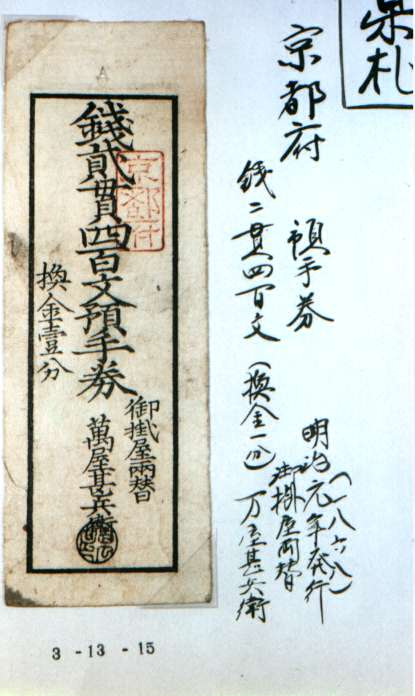 県札
京都府　預手券
銭二貫四百文（換金一分）
明治元年発行
（一八六八）
御掛屋両替
万屋甚兵衛
A
京都府
錢貳貫四百文預手券
換金壹分
御掛屋兩替
萬屋甚兵衛
3 -13 - 15